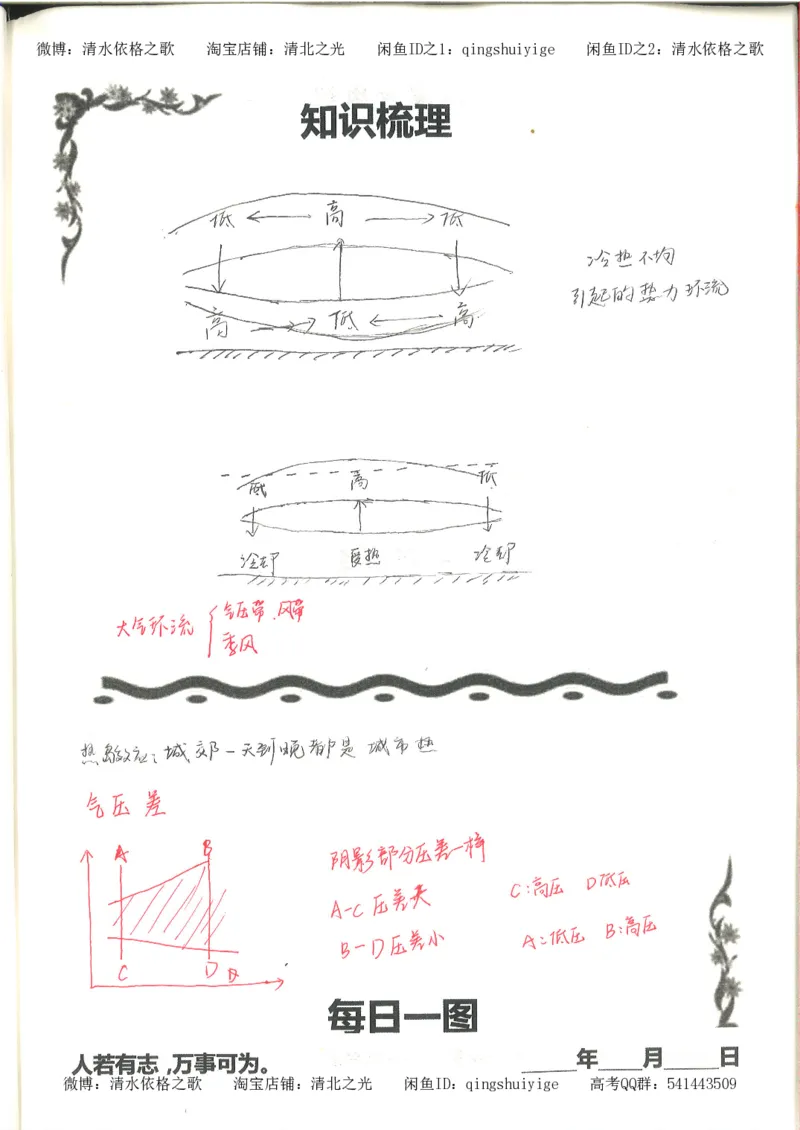 微博：清水依格之歌 淘宝店铺：清北之光 闲鱼ID之1：qingshuiyige 闲鱼ID之2：清水依格之歌
知识梳理
低 高 低
冷热不均
引起的热力环流
高 低 高
低 高 低
冷却 受热 冷却
大气环流 气压带、风带
季风
热岛效应：城郊一天到晚都是城市热
气压差
A B
阴影部分压差一样
A-C 压差大 C:高压 D低压
B-D 压差小 A:低压 B:高压
C D
每日一图
人若有志,万事可为。 年 月 日
微博：清水依格之歌 淘宝店铺：清北之光 闲鱼ID：qingshuiyige 高考QQ群：541443509